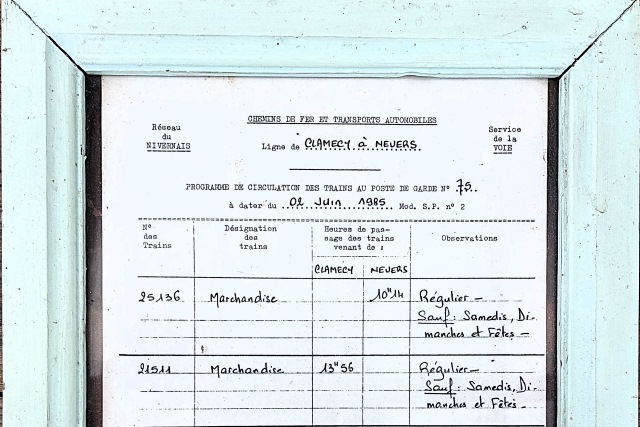 CHEMINS DE FER ET TRANSPORTS AUTOMOBILES
Réseau
du
NIVERNAIS
Ligne de CLAMECY à NEVERS.
Service
de la
VOIE
PROGRAMME DE CIRCULATION DES TRAINS AU POSTE DE GARDE N° 75.
à dater du 02 Juin 1985 Mod. S.P. n° 2
N°
des
Trains
Désignation
des
trains
Heures de pas-
sage des trains
venant de :
Observations
CLAMECY NEVERS
25136 Marchandise 10H14 Régulier -
Sauf : Samedis, Di-
manches et Fêtes -
21511 Marchandise 13H56 Régulier -
Sauf : Samedis, Di-
manches et Fêtes -